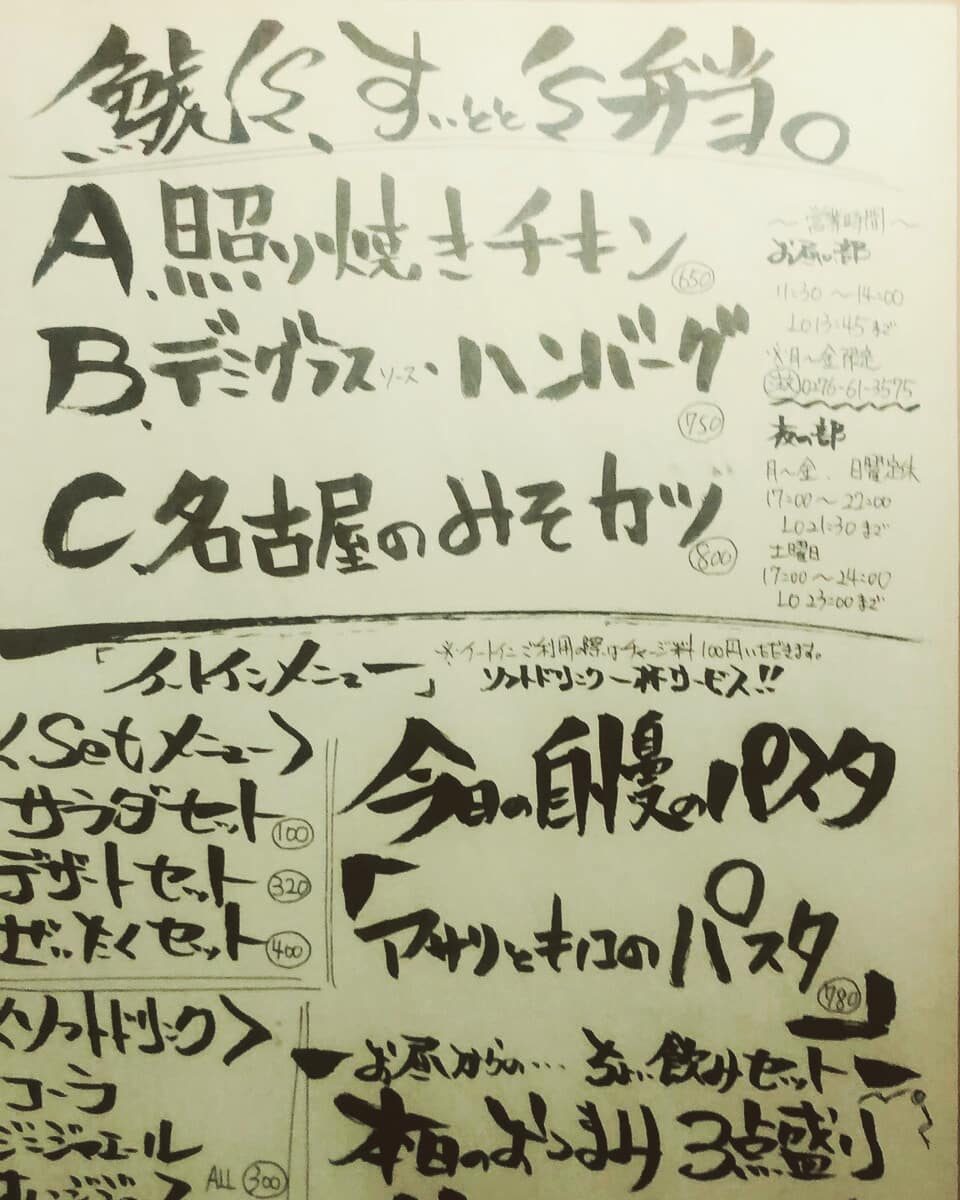 すいとと弁当。
A.照り焼きチキン 650
B.デミグラスソース・ハンバーグ 750
C.名古屋のみそカツ 800
〜営業時間〜
お昼の部
11:30〜14:00
LO13:45まで
※月〜金限定
0276-61-3575
夜の部
月〜金、日曜定休
17:00〜22:00
LO21:30まで
土曜日
17:00〜24:00
LO23:00まで
「イートインメニュー」
※イートインご利用の際はチャージ料100円いただきます。
ソフトドリンク一杯サービス!!
〈Setメニュー〉
サラダセット 100
デザートセット 320
ぜいたくセット 400
〈ソフトドリンク〉
コーラ
ジンジャエール
ALL 300
今日の自慢のパスタ
「アサリときのこのパスタ」 780
お昼からの…ちょい飲みセット
本日のおつまみ3点盛り